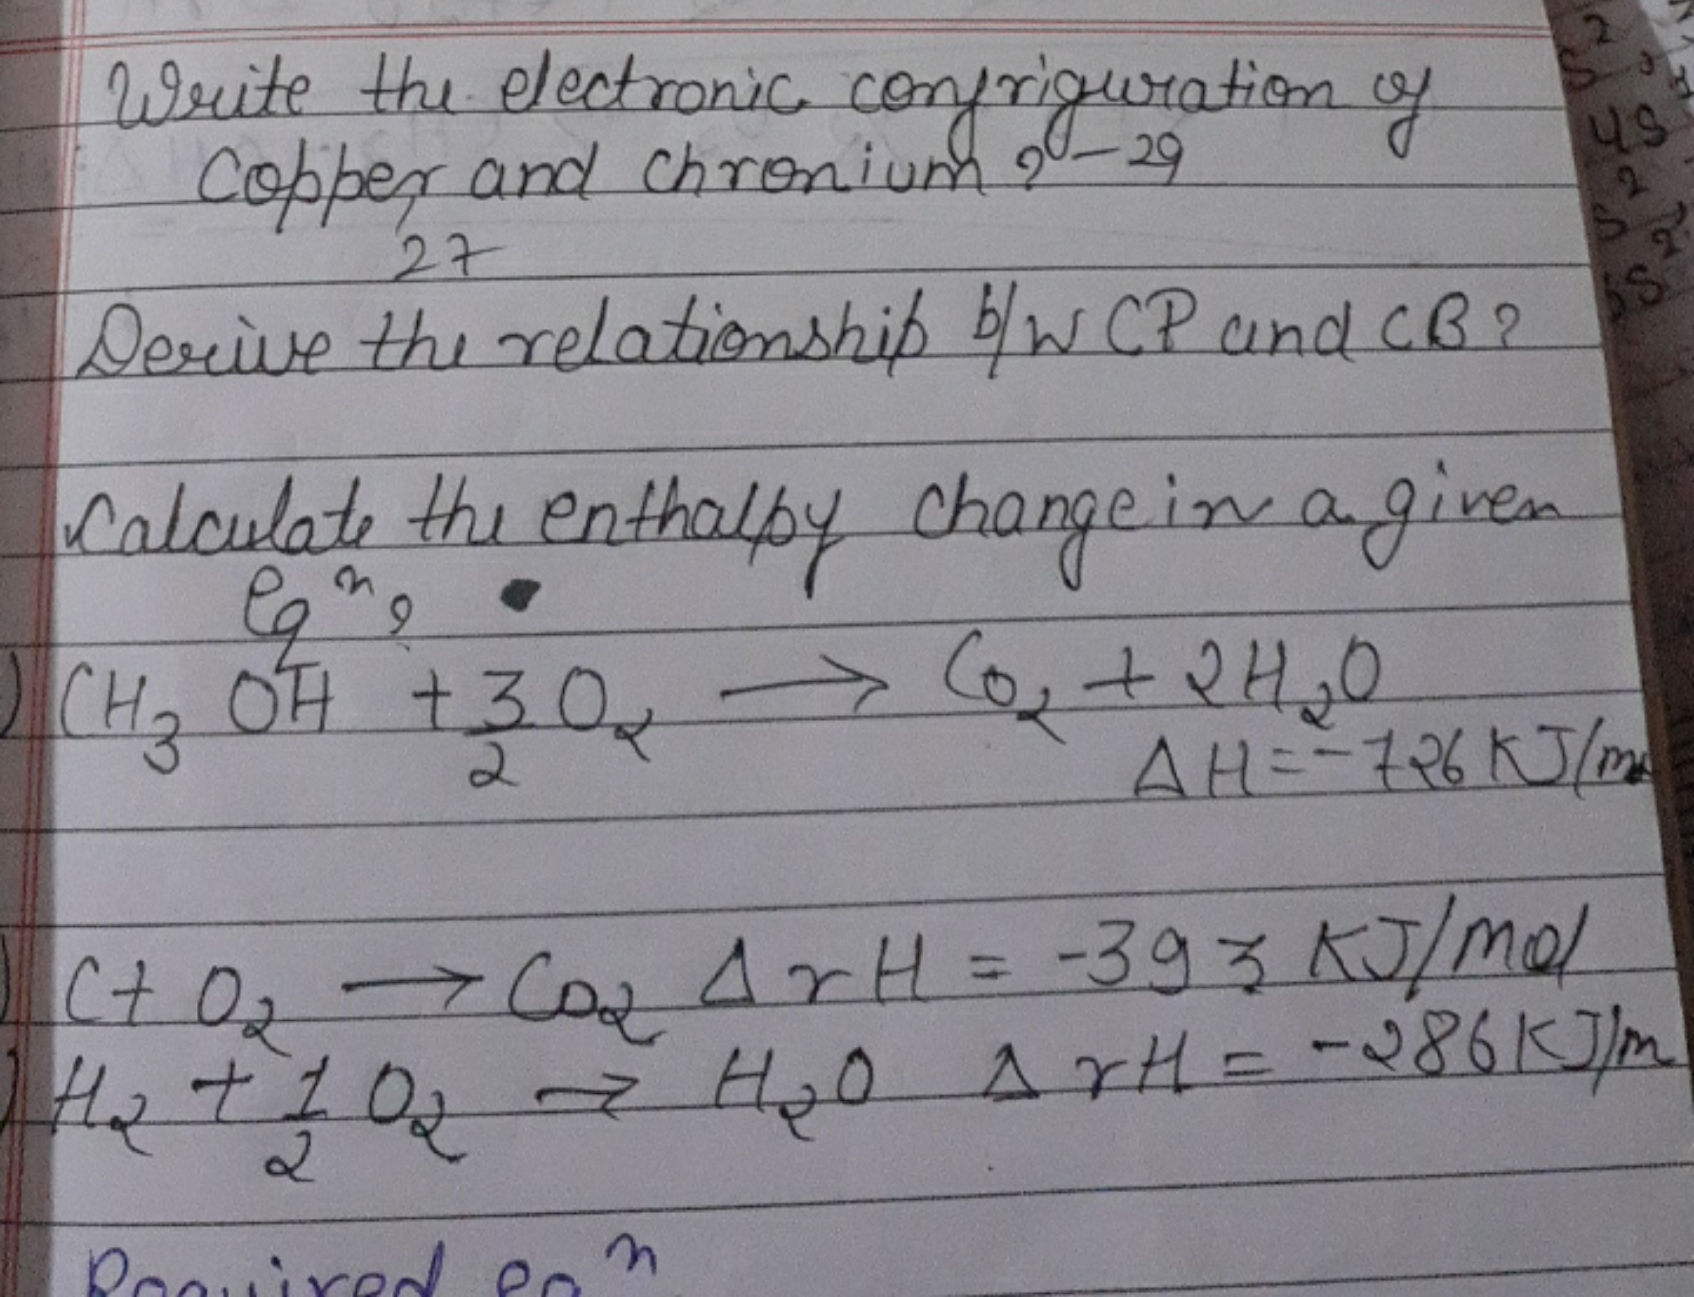 Write the electronic confriguration of
Copper and chronium ? - 29
27
Derive the relationship b/w CP and CB?
Calculate the enthalpy change in a given
eqn?
) CH3 OH + 3/2 O2 → CO2 + 2H2O
ΔH = -726 KJ/m
) C + O2 → CO2 ΔrH = -393 KJ/mol
) H2 + 1/2 O2 → H2O ΔrH = -286 KJ/m
Required eqn